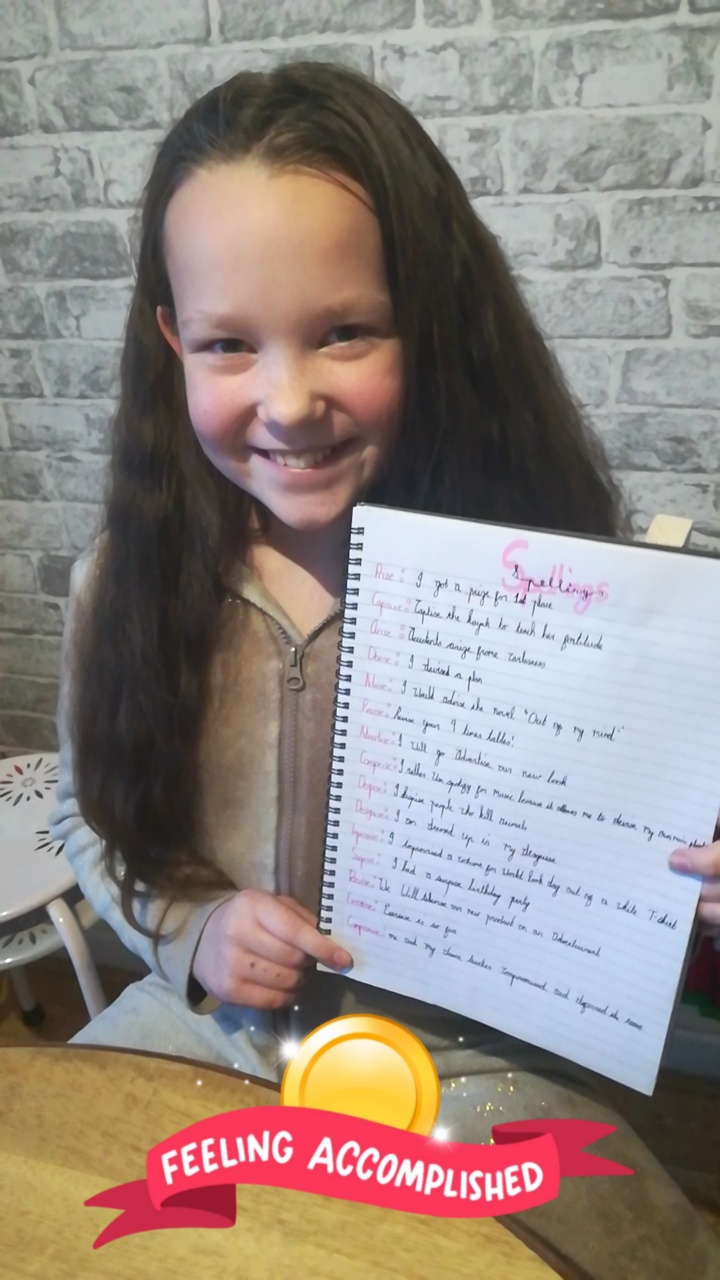 Spellings
Spellings
Prize: I got a prize for 1st place
Capsize: Capsize the kayak to teach her fortitude
Arise: Accidents arise from
Devise: I devised a plan
Advise: I would advise the novel "Out of my mind"
Revise: Revise your 9 times tables!
Advertise: I will go Advertise our new book
Comprise: I rather use spotify for music because it allows me to my own
Despise: I despise people who kill animals
Disguise: I am dressed up in my disguise
Improvise: I improvised a costume for World book day out of a white T-shirt
Surprise: I had a surprise birthday party
We Will our new product on an Advertisement
Exercise: Exercise is so fun
Compromise: me and my dance teacher and
FEELING ACCOMPLISHED